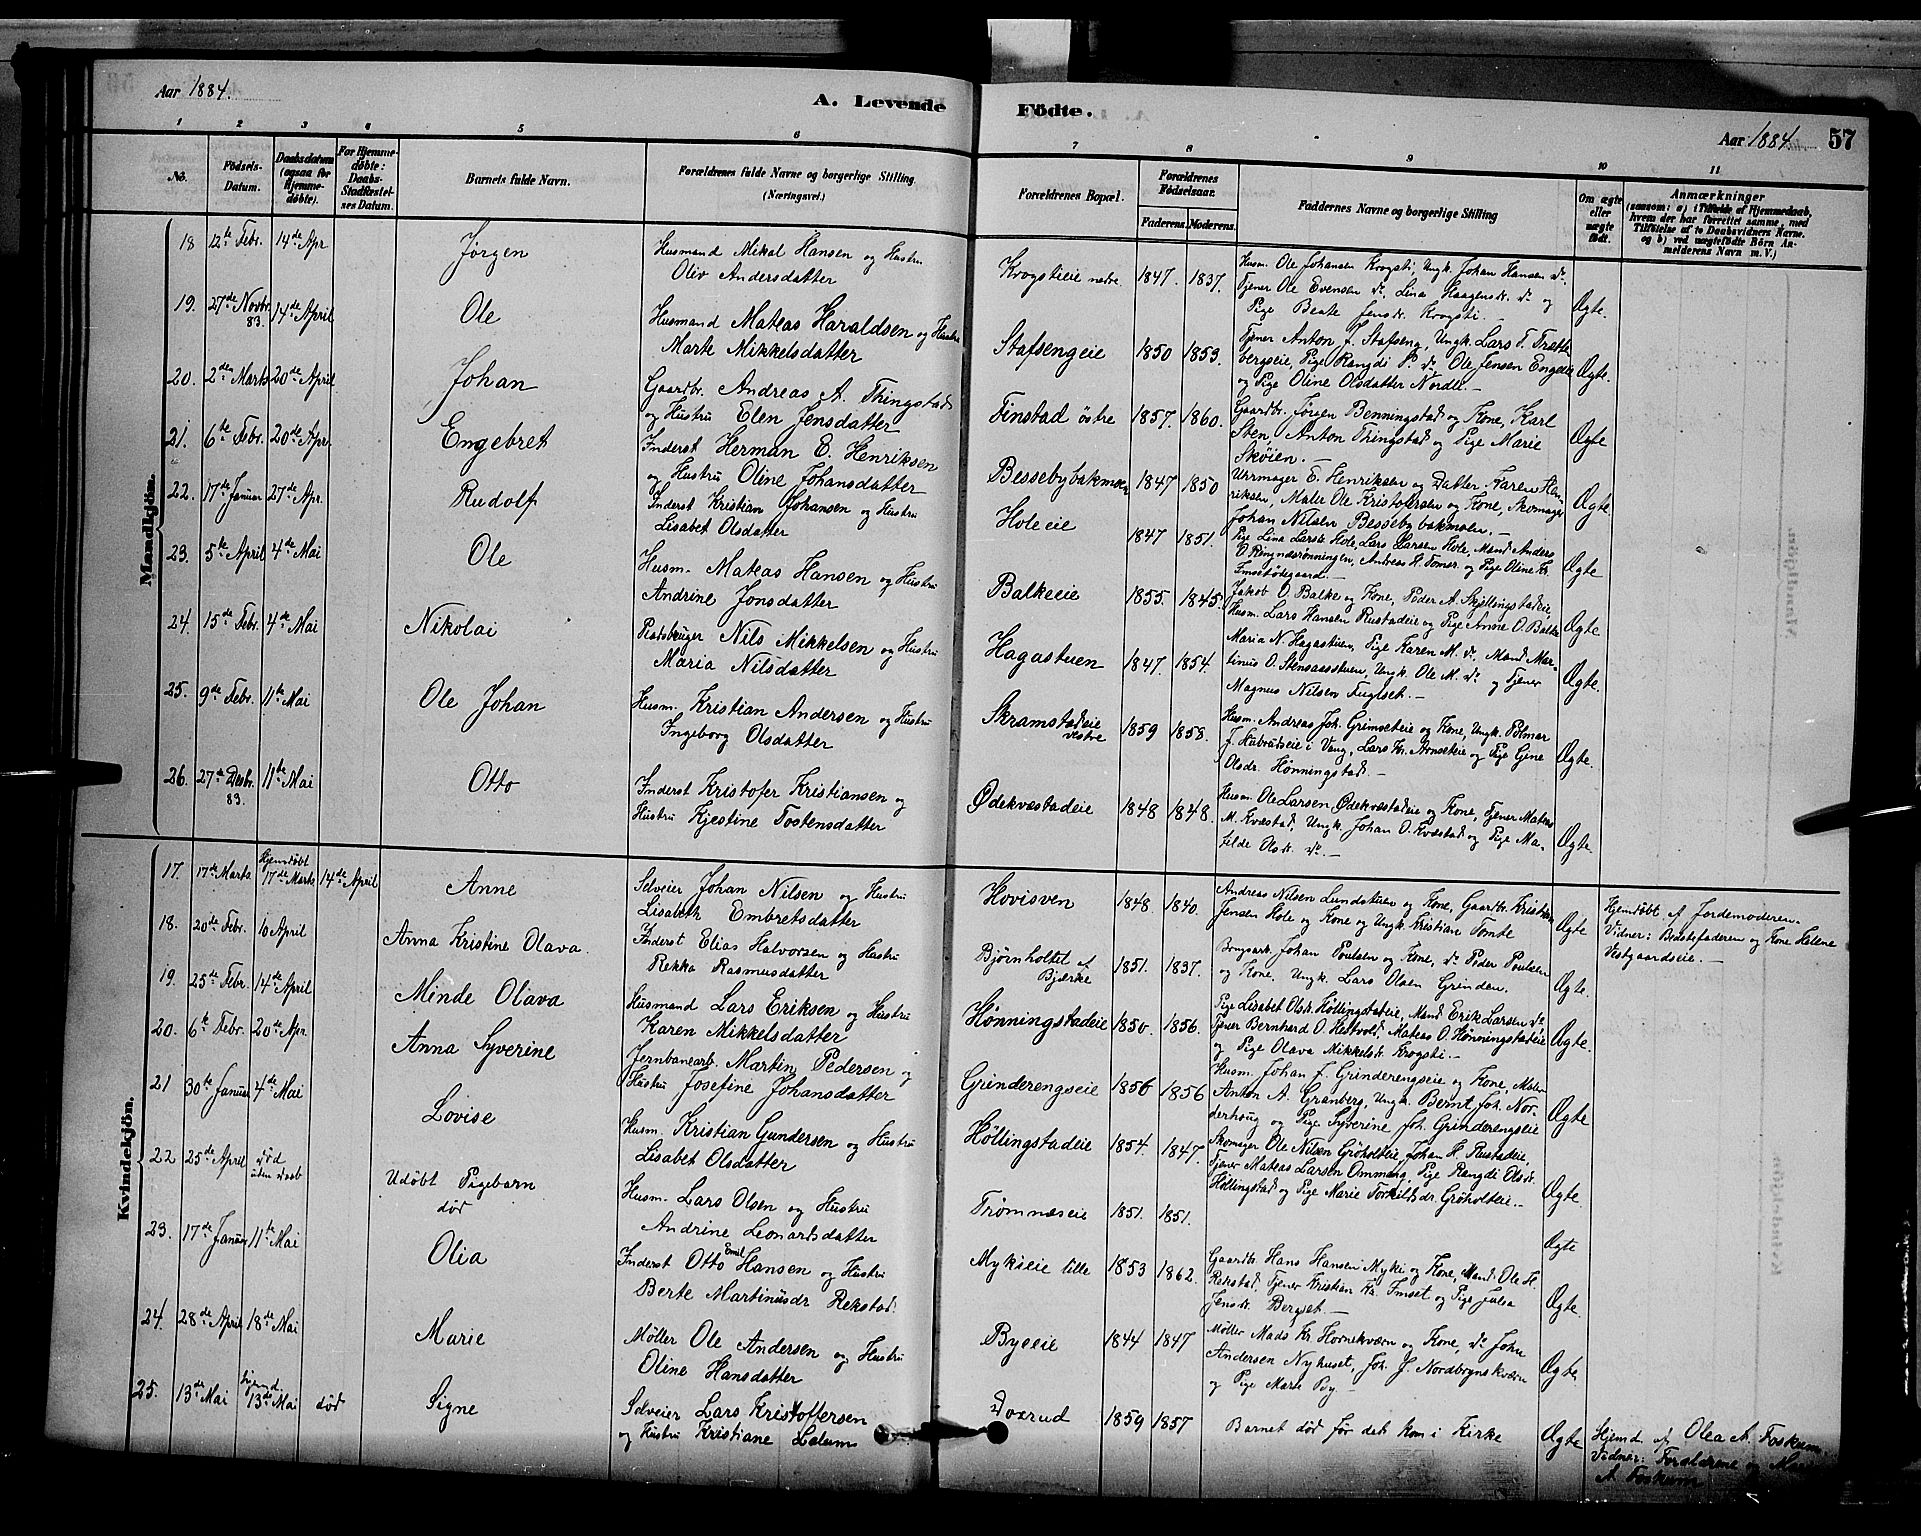 Aar 1884.
A. Levende
Födte.
Aar 1884.
57
1 2 3 4 5 6 7 8 9 10 11
No.
Födsels-Datum.
Daabsdatum (ogsaa for Hjemmedöbte).
For Hjemmedöbte: Daabs-Stadfæstelses Datum.
Barnets fulde Navn.
Forældrenes fulde Navne og borgerlige Stilling (Næringsvei.)
Forældrenes Bopæl.
Forældrenes Födselsaar.
Faderens. Moderens.
Faddernes Navne og borgerlige Stilling
Om ægte eller uægte födt.
Anmærkninger
(saasom: a) i Tilfælde af Hjemmedaab, hvem der har forrettet samme, med Tilföielse af to Daabsvidners Navne. og b) ved uægtefödte Börn Anmelderens Navn m. V.)
Mandkjön.
18 12te Febr. 14de Apr. Jørgen
Husmand Mikal Hansen og Hustru
Oliv Andersdatter
Krogstieie nedre. 1847. 1837.
Husm. Ole Johansen Krogsti, Ungk. Johan Hansen do.
Tjener Ole Evensen do, Lina Haagensdr. do og
Pige Beate Jensdr. Krogsti.
Ægte.
19. 27de Novbr. 83. 14de April Ole
Husmand Mateas Haraldsen og Hustru
Marte Mikkelsdatter
Stafsengeie 1850 1853.
Tjener Anton J. Stafseng, Ungk. Lars T. Trætte
bergseie, Pige Rangdi P. do Ole Jensen Engelie
og Pige Oline Olsdatter Nordli.
Ægte.
20. 2den Marts 20de April Johan
Gaardbr. Andreas A. Thingstad
og Hustru Elen Jensdatter
Finstad östre 1857. 1860.
Gaardbr. Jörgen Benningstad og Kone, Karl
Sten, Anton Thingstad og Pige Marie
Skøien.
Ægte
21. 6te Febr. 20de Apr. Engebret
Inderst Herman E. Henriksen
og Hustru Oline Johansdatter
Bessebybakmoen 1847 1850
Uhrmager E. Henriksen og Datter Karen Hen-
riksen, Maler Ole Kristofersen og Kone, Skomager
Johan Nilsen Bessebybakmoen.
Ægte
22. 17de Januar 27de Apr. Rudolf
Inderst Kristian Johansen og Hustru
Lisabet Olsdatter
Holeeie 1847 1851.
Pige Lina Larsdr. Hole, Lars Larsen Hole, Mand Anders
O. Ringnæsrønningen, Andreas H. Tomer og Pige Oline Kr.
Imsetødegaard.
Ægte
23. 5te April 4de Mai Ole
Husm. Mateas Hansen og Hustru
Andrine Jonsdatter
Balkeeie 1855. 1845.
Jakob O. Balke og Kone, Peder A. Skjellingstadeie
Husm. Lars Hansen Rustadeie og Pige Anne O. Balke
Ægte
24. 15de Febr. 4de Mai Nikolai
Pladsbruger Nils Mikkelsen og Hustru
Maria Nilsdatter
Hagastuen 1847. 1854.
Maria N. Hagastuen, Pige Karen M. do, Mand Mar-
tinus O. Stensaasstuen, Ungk. Ole M. do og Tjener
Magnus Nilsen Fuglset.
Ægte.
25. 9de Febr. 11te Mai Ole Johan
Husm. Kristian Andersen og Hustru
Ingeborg Olsdatter
Skramstadeie vestre 1859 1858.
Husm. Andreas Joh. Grimseteie og Kone, Ungk. Polmar
J. Hubredseie i Vang, Lars Kr. Arnseteie og Pige Gine
Olsdr. Hönningstad.
Ægte.
26. 27de Decbr. 83. 11te Mai Otto
Inderst Kristofer Kristiansen og
Hustru Kjestine Tostensdatter
Ødekvæstadeie 1848 1848.
Husm. Ole Larsen Ødekvæstadeie og Kone, Tjener Mateas
M. Kvæstad, Ungk. Johan O. Kvæstad og Pige Ma-
tilde Olsdr. do.
Ægte.
Kvindekjön.
17. 17de Marts Hjemdöbt 17de Marts 14de April Anne
Selveier Johan Nilsen og Hustru
Lisabeth Embretsdatter
Hovisven 1848. 1840.
Andreas Nilsen Lundstuen og Kone, Gaardbr. Kristian
Jensen Hole og Kone og Ungk. Kristian Tomte
Ægte
Hjemdöbt af Jordemoderen.
Vidner: Bedstefaderen og Kone Helene
Vestgaardseie.
18. 20de Febr. 10 April Anna Kristine Olava.
Inderst Elias Halvorsen og Hustru
Rekka Rasmusdatter
Bjørnholtet af Bjærke 1851. 1837.
Brugsarb. Johan Poulsen og Kone, do Peder Poulsen
og Kone, Ungk. Lars Olsen Grinden.
Ægte.
19. 25de Febr. 14de April Minde Olava
Husmand Lars Eriksen og Hustru
Karen Mikkelsdatter
Hønningstadeie 1850. 1856.
Pige Lisabet Olsdr. Höllingstadeie, Mand Erik Larsen do
Tjener Bernhard O. Hestvold, Mateas O. Hønningstadeie
og Pige Olava Mikkelsdr. Krogsti.
Ægte.
20. 6te Febr. 20de Apr. Anna Syverine
Jernbanearb. Martin Pedersen og
Hustru Josefine Johansdatter
Grinderengseie 1856 1856
Husm. Johan J. Grinderengseie og Kone, Maler
Anton A. Granberg, Ungk. Bernt Joh. Nor-
derhoug og Pige Syverine Joh. Grinderengseie
Ægte
21 30te Januar 4de Mai Lovise
Husm. Kristian Gundersen og Hustru
Lisabet Olsdatter
Høllingstadeie 1854. 1847.
Skomager Ole Nilsen Gröholteie, Johan H. Rustadeie,
Tjener Mateas Larsen Ommang, Pige Rangdi Olsdr.
Höllingstad og Pige Marie Torkilsdr. Gröholteie.
Ægte.
22 25de April död uden Daab Udöbt Pigebarn
död
Husm. Lars Olsen og Hustru
Andrine Leonardsdatter
Trømnæseie 1851. 1851.
Ægte
23. 17de Januar 11te Mai Olia
Inderst Otto Emil Hansen og Hustru
Berte Martinusdr Rekstad.
Mykieie lille 1853 1862.
Gaardbr. Hans Hansen Myki og Kone, Mand Ole H.
Rekstad, Tjener Kristian Kr. Imset og Pige Julia
Jensdr. Berget.
Ægte.
24. 28de April 18de Mai Marie
Møller Ole Andersen og Hustru
Oline Hansdatter
Byeeie 1844 1847
Møller Mads Kr. Hornekværn og Kone, do John
Andersen Nyhuset, Joh. J. Nordbynskværn
og Pige Marte By.
Ægte.
25. 13de Mai Hjemd. 13de Mai död Signe
Selveier Lars Kristoffersen
og Hustru Kristiane Lalum
Doxrud 1859 1857
Barnet död för det kom i Kirke
Ægte
Hjemd. af Olea A. Foskum
Vidner: Forældrene og
A. Foskum